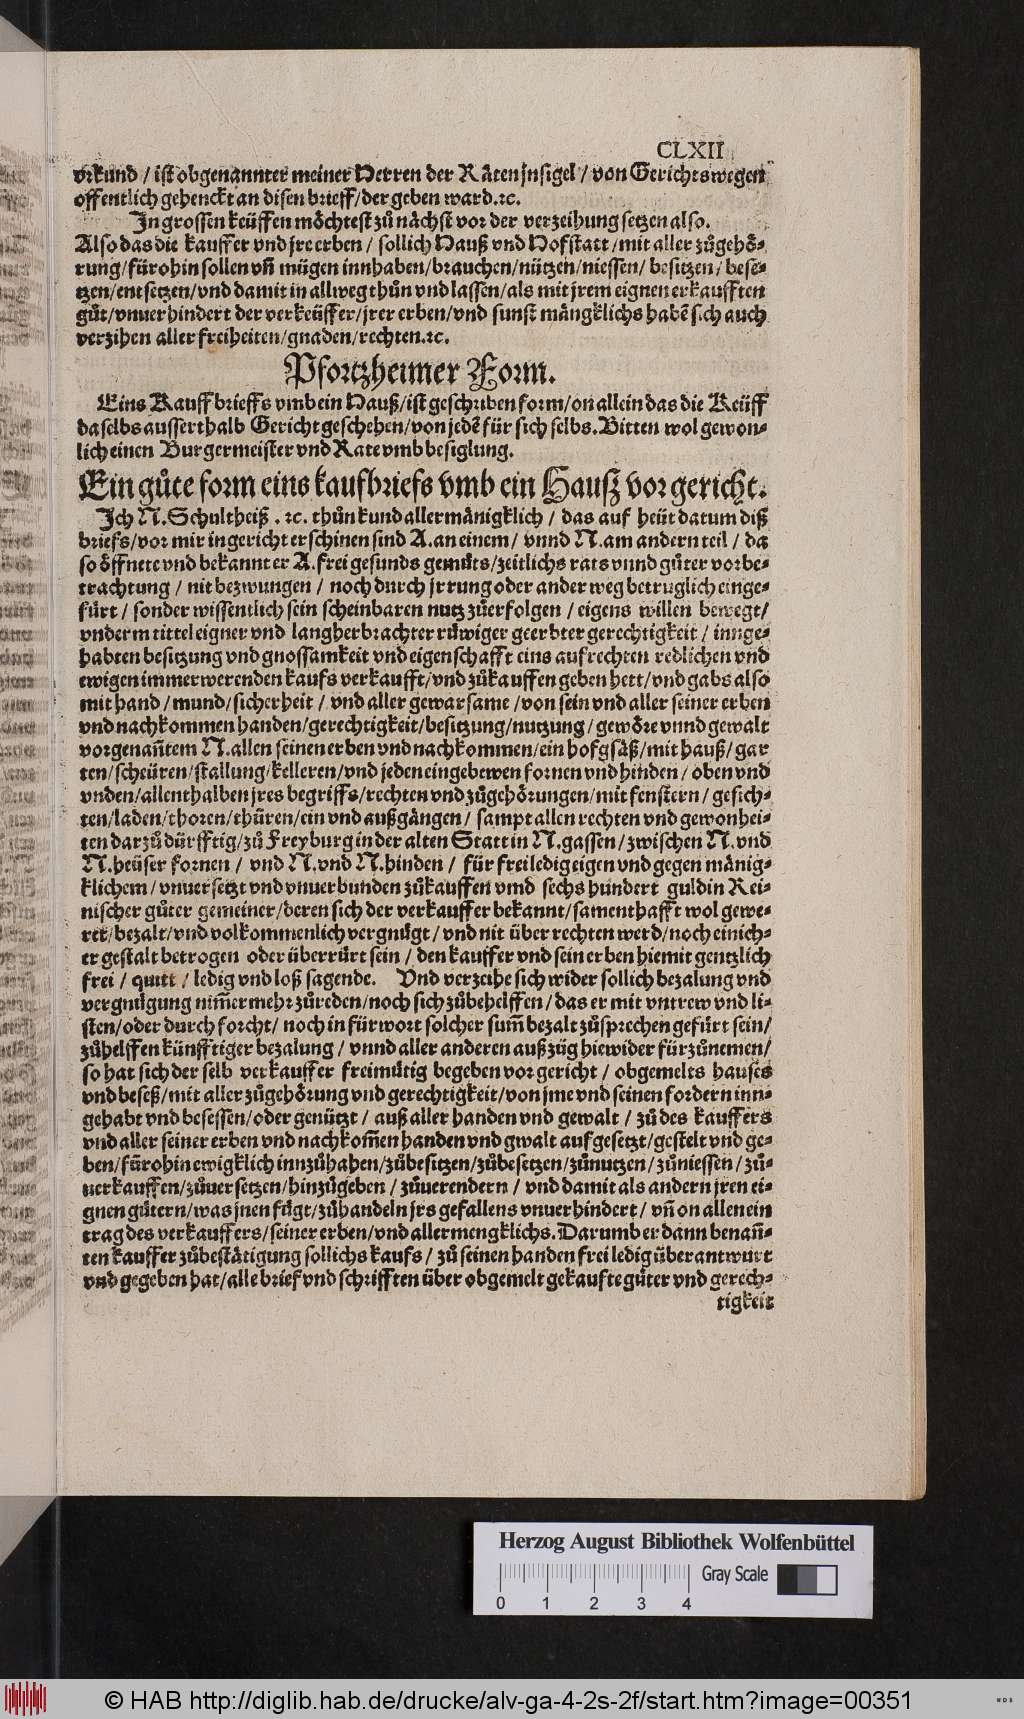 CLXII
vrkund / ist obgenannter meiner Herren der Räten jnsigel / von Gerichtswegen
offentlich gehenckt an disen brieff/der geben ward.ꝛc.
In grossen keüffen möchtest zů nächst vor der verzeihung setzen also.
Also das die kauffer vnd jre erben / sollich Hauß vnd Hofstatt / mit aller zůgehö⸗
rung/fürohin sollen vñ mügen innhaben/brauchen/nützen/niessen/ besitzen/ bese⸗
tzen/entsetzen/vnd damit in allweg thůn vnd lassen/als mit jrem eignen erkaufften
gůt/vnuerhindert der verkeüffer/jrer erben/vnd sunst mängklichs habẽ sich auch
verzihen aller freiheiten/gnaden/rechten.ꝛc.
Pfortzheimer Form.
Eins Kauffbrieffs vmb ein Hauß/ist geschriben form/on allein das die Keüff
daselbs ausserthalb Gericht geschehen/von jedẽ für sich selbs. Bitten wol gewon⸗
lich einen Burgermeister vnd Rate vmb besiglung.
Ein gůte form eins kaufbriefs vmb ein Hausz vor gericht.
Ich N. Schultheiß . ꝛc. thůn kund allermänigklich / das auf heüt datum diß
briefs/vor mir in gericht erschinen sind A. an einem/ vnnd N. am andern teil / da
so öffnete vnd bekannt er A. frei gesunds gemüts/zeitlichs rats vnnd gůter vorbe⸗
trachtung / nit bezwungen / noch durch jrrung oder ander weg betruglich einge⸗
fürt / sonder wissentlich sein scheinbaren nutz zůerfolgen / eigens willen bewegt/
vnderm tittel eigner vnd langherbrachter rüwiger geerbter gerechtigkeit / innge⸗
habten besitzung vnd gnossamkeit vnd eigenschafft eins aufrechten redlichen vnd
ewigen immerwerenden kaufs verkaufft/vnd zůkauffen geben hett/vnd gabs also
mit hand / mund/sicherheit / vnd aller gewarsame /von sein vnd aller seiner erben
vnd nachkommen handen/gerechtigkeit/besitzung/nutzung/ gewöre vnnd gewalt
vorgenañtem N. allen seinen erben vnd nachkommen/ein hofgsäß/mit hauß/ gar
ten/scheüren/stallung/kelleren/vnd jeden eingebewen fornen vnd hinden / oben vnd
vnden/allenthalben jres begriffs/rechten vnd zůgehörungen/mit fenstern/ gesich⸗
ten/laden/thoren/thüren/ein vnd außgängen/ sampt allen rechten vnd gewonhei⸗
ten darzů dürfftig/zů Freyburg in der alten Statt in N. gassen/ zwischen N. vnd
N. heüser fornen / vnd N. vnd N. hinden / für frei ledig eigen vnd gegen mänig⸗
klichem / vnuersetzt vnd vnuerbunden zůkauffen vmd sechs hundert guldin Rei⸗
nischer gůter gemeiner/deren sich der verkauffer bekannt/samenthafft wol gewe⸗
ret/bezalt/vnd volkommenlich vergnügt / vnd nit über rechten werd/noch einich⸗
er gestalt betrogen oder überrürt sein / den kauffer vnd sein erben hiemit gentzlich
frei / quitt / ledig vnd loß sagende. Vnd verzeihe sich wider sollich bezalung vnd
vergnügung nim̃ermehr zůreden/noch sich zůbehelffen/ das er mit vntrew vnd li⸗
sten/oder durch forcht/ noch in fürwort solcher sum̃ bezalt zůsprechen gefürt sein/
zůhelffen künfftiger bezalung / vnnd aller anderen außzüg hiewider fürzůnemen/
so hat sich der selb verkauffer freimütig begeben vor gericht / obgemelts hauses
vnd beseß/mit aller zůgehörung vnd gerechtigkeit/von jme vnd seinen fordern inn⸗
gehabt vnd besessen/oder genützt / auß aller handen vnd gewalt / zů des kauffers
vnd aller seiner erben vnd nachkom̃en handen vnd gwalt aufgesetzt/gestelt vnd ge⸗
ben/fürohin ewigklich innzůhaben/zůbesitzen/zůbesetzen/zůnutzen/zůniessen/ zů⸗
uerkauffen/zůuersetzen/hinzůgeben / zůuerendern / vnd damit als andern jren ei⸗
gnen gütern/was jnen fügt/zůhandeln jrs gefallens vnuerhindert/ vñ on allen ein
trag des verkauffers/seiner erben/vnd allermengklichs. Darumb er dann benañ⸗
ten kauffer zůbestätigung sollichs kaufs/ zů seinen handen frei ledig überantwurt
vnd gegeben hat/alle brief vnd schrifften über obgemelt gekaufte güter vnd gerech⸗
tigkeit
Herzog August Bibliothek Wolfenbüttel
Gray Scale
0 1 2 3 4
© HAB http://diglib.hab.de/drucke/alv-ga-4-2s-2f/start.htm?image=00351
WDB